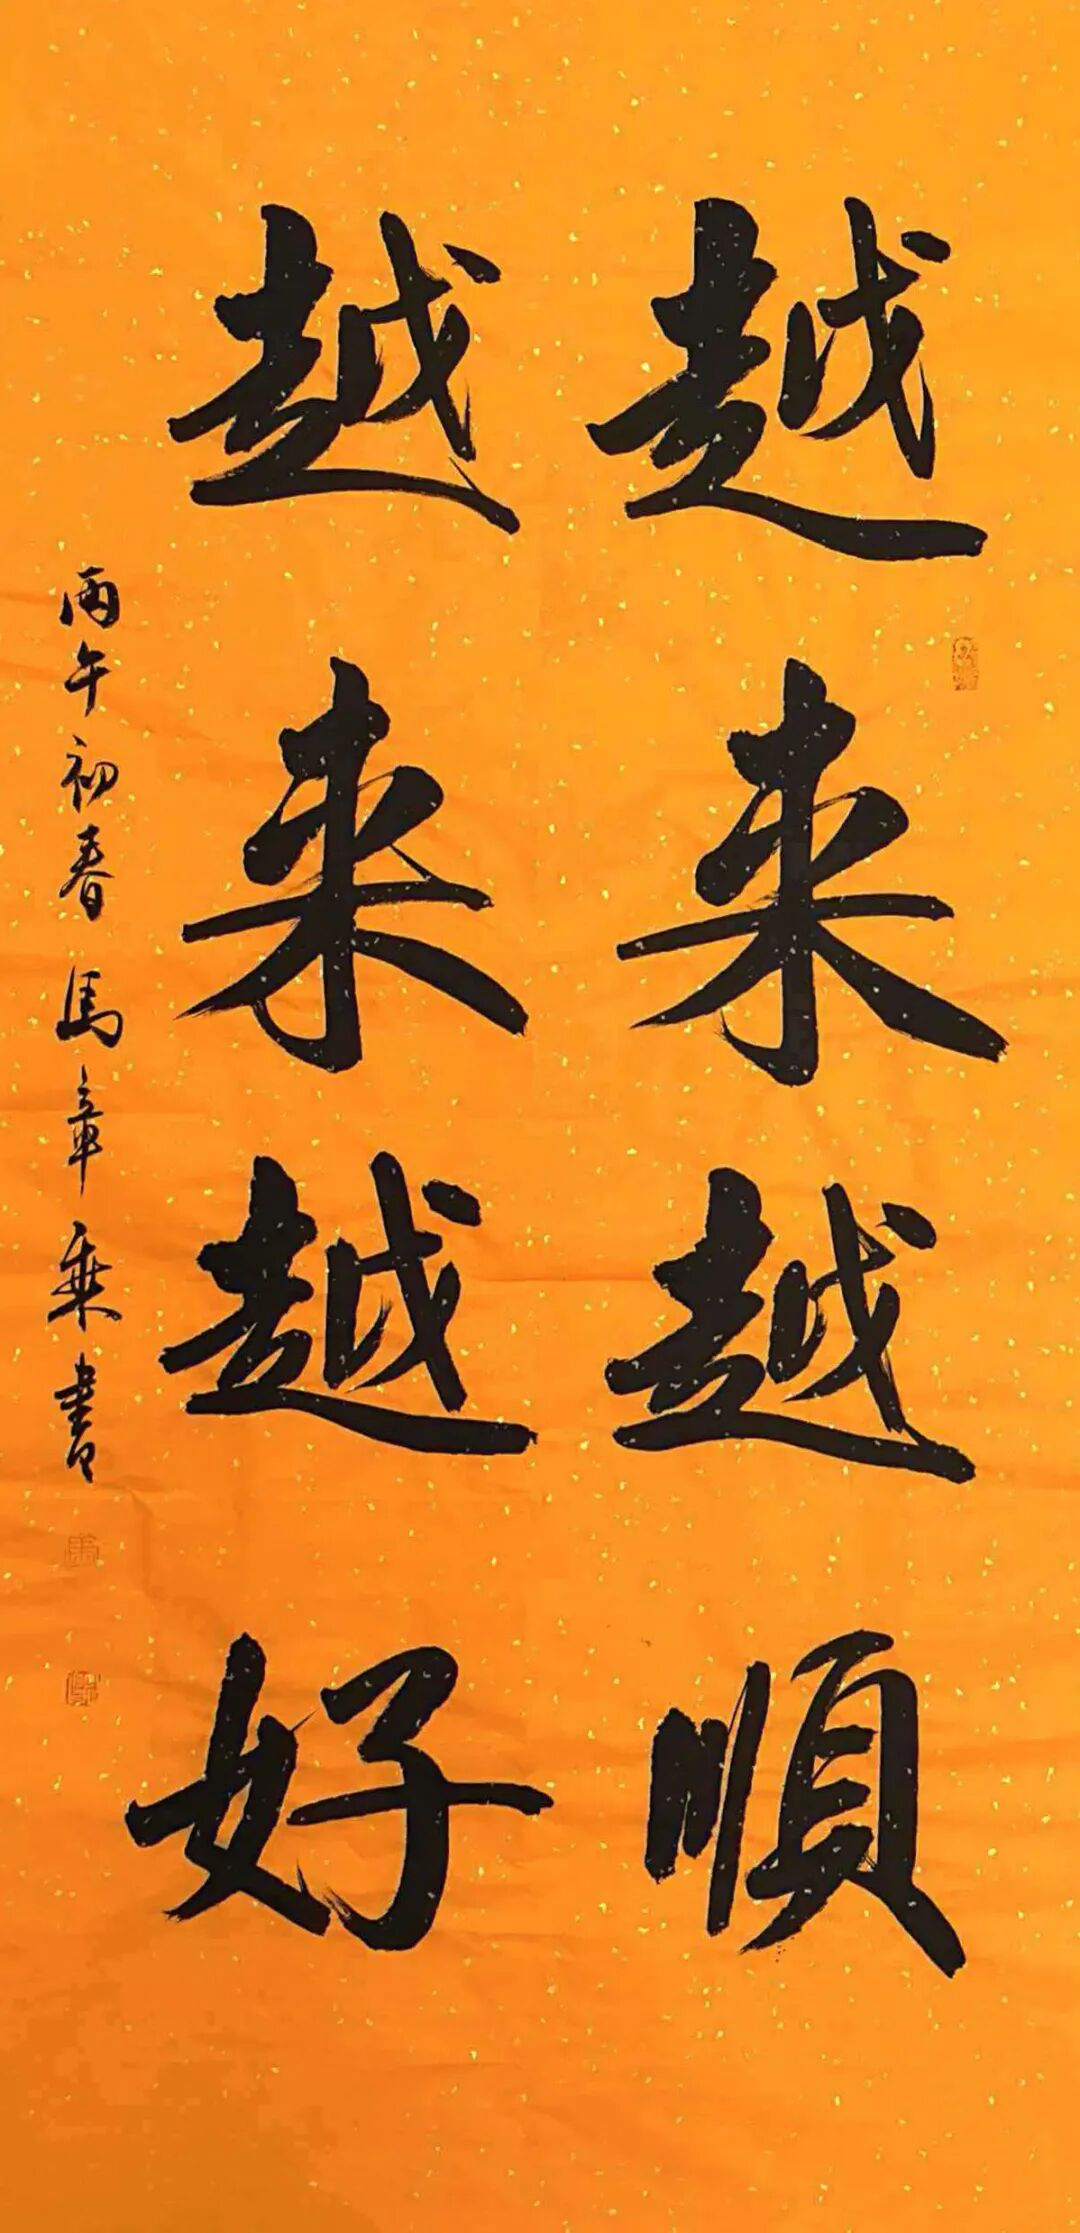 越来越順
越来越好
丙午初春馬章乘書